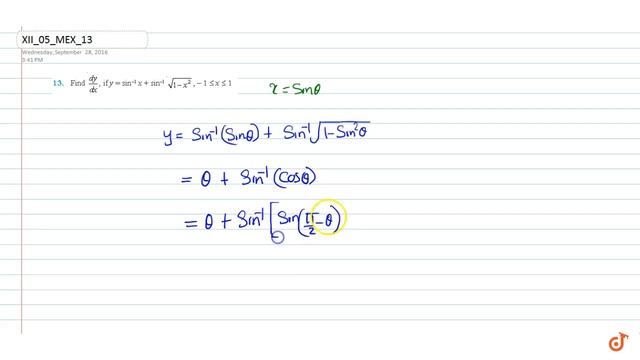 XII_05_MEX_13
Wednesday, September 28, 2016
3:41 PM
13. Find dy/dx, if y = sin⁻¹ x + sin⁻¹ √(1−x²), −1 ≤ x ≤ 1
x = Sinθ
y = Sin⁻¹(Sinθ) + Sin⁻¹√(1−Sin²θ)
= θ + Sin⁻¹(Cosθ)
= θ + Sin⁻¹[Sin(π/2 − θ)